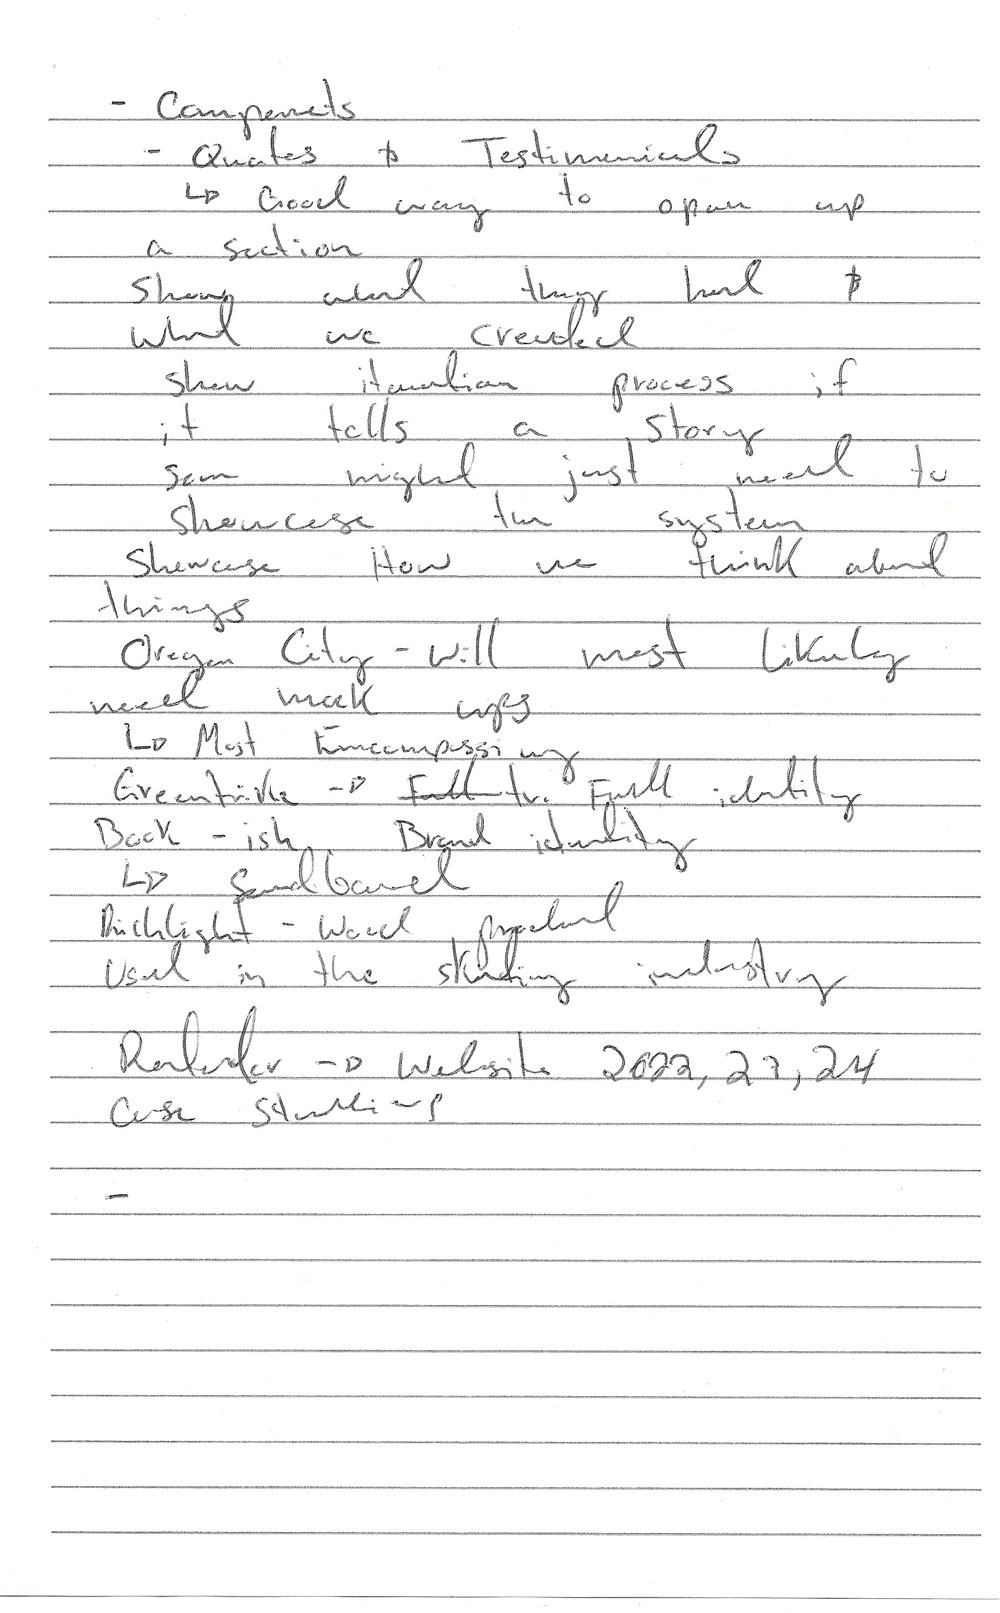 - Components
- Quotes & Testimonials
↳ Good way to open up
a section
Show what they had &
what we created
show iteration process if
it tells a story
some might just need to
showcase the system
Showcase How we think about
things
Oregon City - will most likely
need mock ups
↳ Most Encompassing
Greentrike → Full identity
Book - ish Brand identity
↳ Sandbarel
Richlight - Wood product
Used in the skating industry
→ Website 2022, 23, 24
Case Studies
-